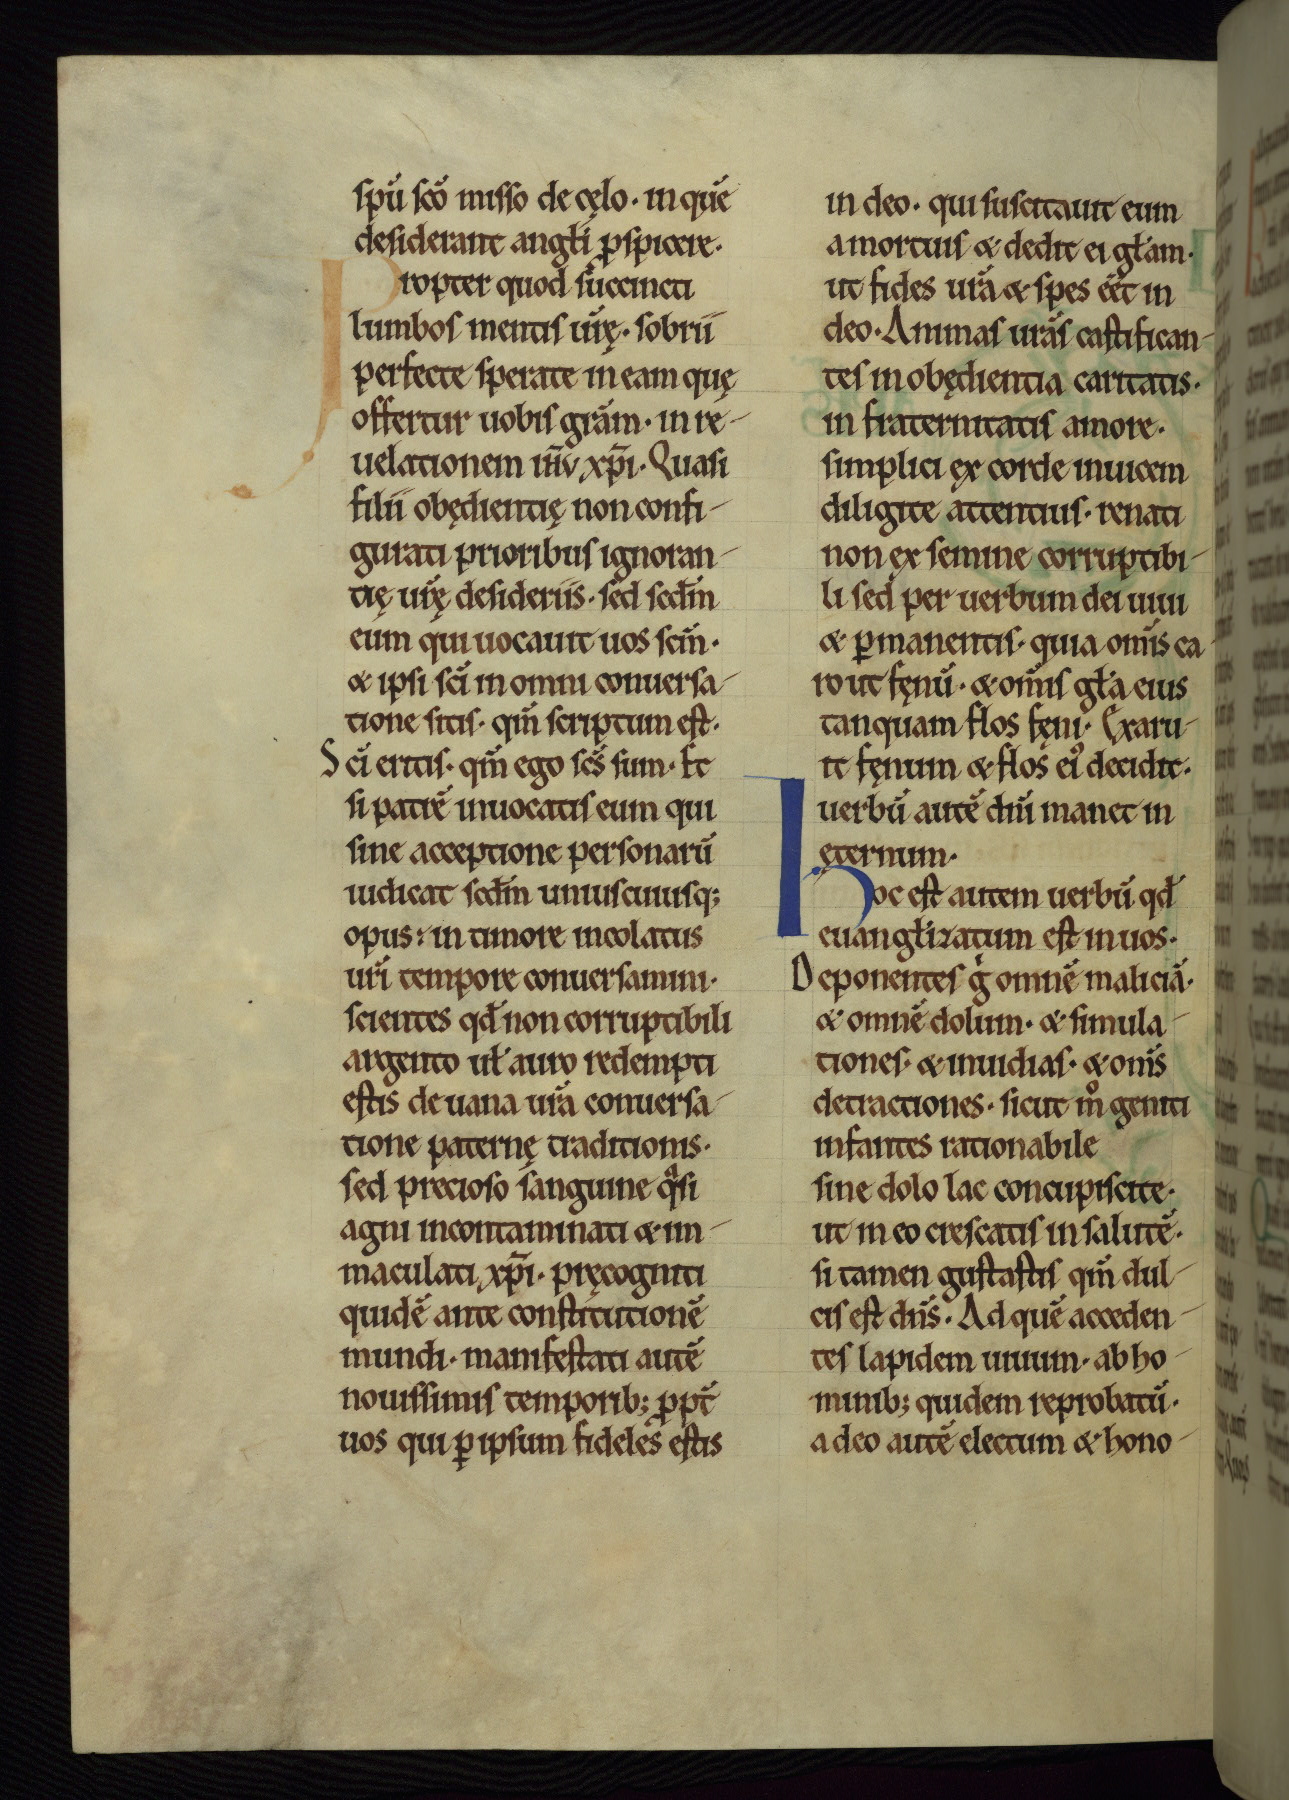 spu̅ sc̅o misso de cęlo · in que̅
desiderant angƚi ꝓspicere ·
Propter quod succincti
lumbos mentis ur̅ę · sobrii
perfecte sperate in eam quę
offertur uobis gra̅m · in re-
uelationem ih̅u xp̅i · Quasi
filii obędientię non confi-
gurati prioribus ignoran-
tię ur̅ę desideriis · sed scdm̅
eum qui uocauit uos scm̅ ·
& ipsi sc̅i in omni conuersa-
tione sitis · qm̅ scriptum est ·
Sc̅i eritis · qm̅ ego sc̅s sum · Et
si patre̅ inuocatis eum qui
sine acceptione personaru̅
iudicat scdm̅ uniuscuiusq;
opus : in timore incolatus
ur̅i tempore conuersamini ·
scientes qd̅ non corruptibili
argento uƚ auro redempti
estis de uana ur̅a conuersa-
tione paternę traditionis ·
sed precioso sanguine qͣsi
agni incontaminati & im-
maculati xp̅i · pręcogniti
quide̅ ante constitutione̅
mundi · manifestati aute̅
nouissimis temporib; ꝓpt̅
uos qui ꝑ ipsum fideles estis
in deo · qui suscitauit eum
a mortuis & dedit ei gƚam ·
ut fides ur̅a & spes ee̅t in
deo · Animas ur̅as castifican-
tes in obędientia caritatis ·
in fraternitatis amore ·
simplici ex corde inuicem
diligite attentius · renati
non ex semine corruptibi-
li sed per uerbum dei uiui
& ꝑmanentis · quia om̅is ca
ro ut fęnu̅ · & om̅is gƚa eius
tanquam flos fęni · Exaru-
it fęnum & flos ei⁹ decidit ·
uerbu̅ aute̅ dn̅i manet in
ęternum ·
Hoc est autem uerbu̅ qd̅
euangƚizatum est in uos ·
Deponentes gͦ omne̅ malicia̅ ·
& omne̅ dolum · & simula-
tiones · & inuidias · & om̅s
detractiones · sicut mͦ geniti
infantes rationabile
sine dolo lac concupiscite ·
ut in eo crescatis in salute̅ ·
si tamen gustastis qm̅ dul-
cis est dn̅s · Ad que̅ acceden-
tes lapidem uiuum · ab ho-
minib; quidem reprobatu̅ ·
a deo aute̅ electum & hono-